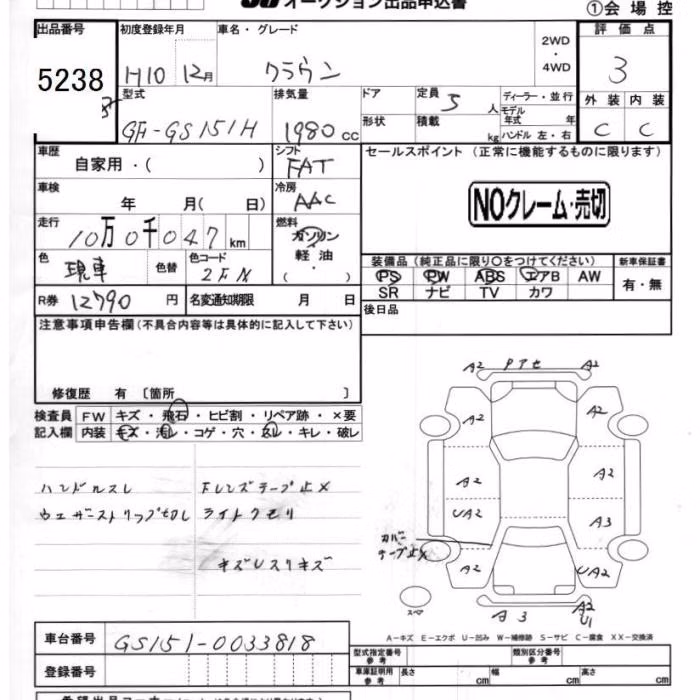 オークション出品申込書
①会場控
出品番号 初度登録年月 車名・グレード 2WD・4WD 評価点
5238 H10 12月 クラウン 3
型式 排気量 ドア 定員 5人 ディーラー・並行 外装 内装
モデル年式 年
GF-GS151H 1980cc 形状 積載 kg ハンドル 左・右 C C
車歴 自家用・( ) シフト FAT セールスポイント (正常に機能するものに限ります)
車検 年 月( 日) 冷房 AAC
NOクレーム・売切
走行 10万0千047km 燃料 ガソリン 軽油 ( ・ )
色 現車 色替 色コード 2FN
装備品 (純正品に限り○をつけてください) 新車保証書
PS PW ABS エアB AW 有・無
SR ナビ TV カワ
R券 12790円 名変通知期限 月 日
後日品
注意事項申告欄 (不具合内容等は具体的に記入して下さい)
修復歴 有 〔箇所 〕
検査員 FW キズ・飛石・ヒビ割・リペア跡・×要
記入欄 内装 キズ・汚レ・コゲ・穴・スレ・キレ・破レ
A2 Pアセ A2
A2 A2
A2 A2
UA2 A3
A2 UA2
スペア A3 A2 U1
ハンドルスレ
ウェザーストリップ切レ ライトクモリ
キズレスリキズ
カバー
テープ止×
A-キズ E-エクボ U-凹み W-補修跡 S-サビ C-腐食 XX-交換済
車台番号 GS151-0033818
型式指定番号 参考 類別区分番号 参考
登録番号
車庫証明用 参考 長さ cm 幅 cm 高さ cm